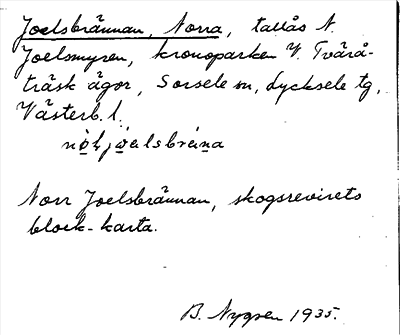 Joelsbrännan, Norra, tallås N.
Joelsmyren, kronoparken V. Tvärå-
träsk ägor, Sorsele sn, Lycksele tg,
Västerb. l.
Norr Joelsbrännan, skogsrevirets
block-karta.
B. Nygren 1935.